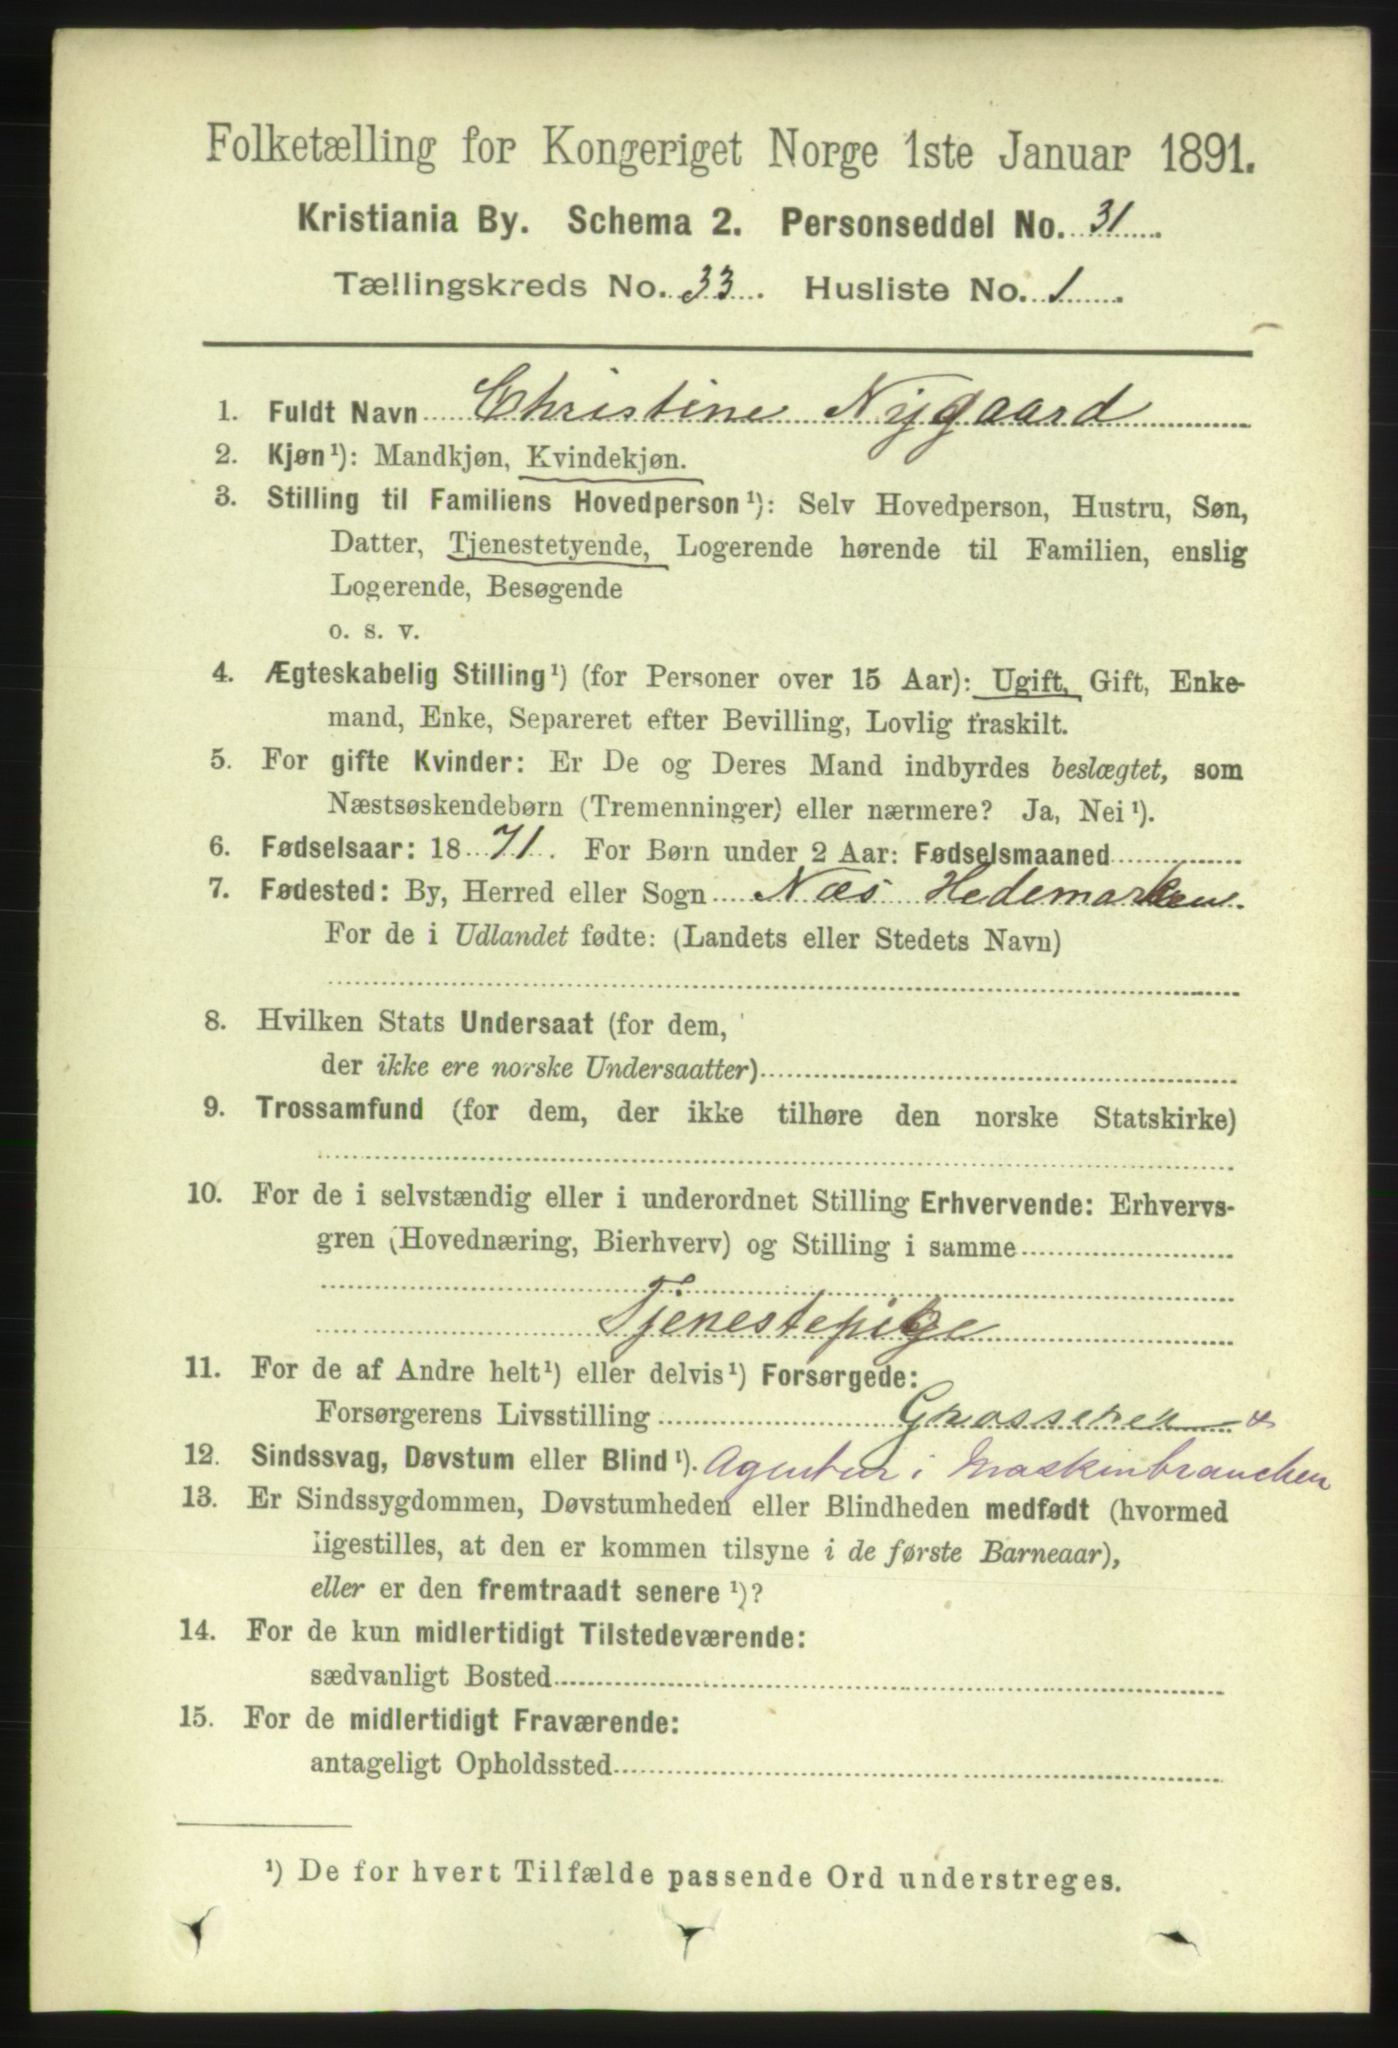 Folketælling for Kongeriget Norge 1ste Januar 1891.
Kristiania By. Schema 2. Personseddel No. 31
Tællingskreds No. 33. Husliste No. 1.
1. Fuldt Navn Christine Nygaard
2. Kjøn¹): Mandkjøn, Kvindekjøn.
3. Stilling til Familiens Hovedperson¹): Selv Hovedperson, Hustru, Søn,
Datter, Tjenestetyende, Logerende hørende til Familien, enslig
Logerende, Besøgende
o. s. v.
4. Ægteskabelig Stilling¹) (for Personer over 15 Aar): Ugift, Gift, Enke-
mand, Enke, Separeret efter Bevilling, Lovlig fraskilt.
5. For gifte Kvinder: Er De og Deres Mand indbyrdes beslægtet, som
Næstsøskendebørn (Tremenninger) eller nærmere? Ja, Nei¹).
6. Fødselsaar: 1871. For Børn under 2 Aar: Fødselsmaaned
7. Fødested: By, Herred eller Sogn Næs Hedemarken.
For de i Udlandet fødte: (Landets eller Stedets Navn)
8. Hvilken Stats Undersaat (for dem,
der ikke ere norske Undersaatter)
9. Trossamfund (for dem, der ikke tilhøre den norske Statskirke)
10. For de i selvstændig eller i underordnet Stilling Erhvervende: Erhvervs-
gren (Hovednæring, Bierhverv) og Stilling i samme
Tjenestepige
11. For de af Andre helt¹) eller delvis¹) Forsørgede:
Forsørgerens Livsstilling Grosserer &
12. Sindssvag, Døvstum eller Blind¹). Agentur i Maskinbranchen
13. Er Sindssygdommen, Døvstumheden eller Blindheden medfødt (hvormed
ligestilles, at den er kommen tilsyne i de første Barneaar),
eller er den fremtraadt senere¹)?
14. For de kun midlertidigt Tilstedeværende:
sædvanligt Bosted
15. For de midlertidigt Fraværende:
antageligt Opholdssted
¹) De for hvert Tilfælde passende Ord understreges.